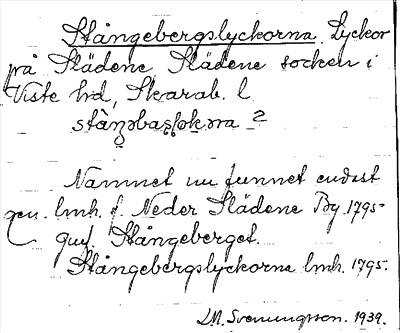 Stångebergslyckorna. Lyckor
på Slädene Slädene socken i
Viste hrd, Skarab. l.
Namnet nu funnet endast
gen. lmh. f. Neder Slädene By. 1795-
Stångeberget.
Stångebergslyckorne lmh. 1795.
LM. Svenungsson. 1939.